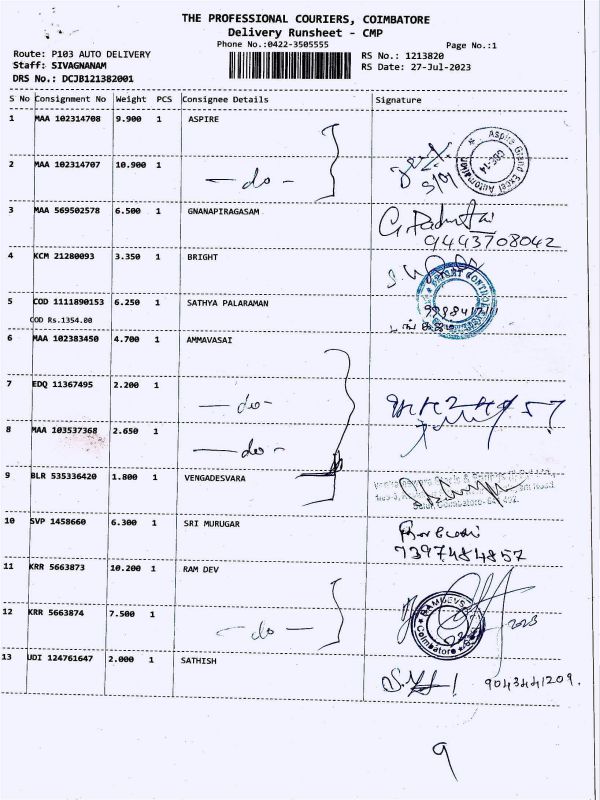 THE PROFESSIONAL COURIERS, COIMBATORE
Delivery Runsheet - CMP
Phone No.:0422-3505555
Page No.:1
Route: P103 AUTO DELIVERY
Staff: SIVAGNANAM
DRS No.: DCJB121382001
RS No.: 1213820
RS Date: 27-Jul-2023
S No Consignment No Weight PCS Consignee Details Signature
1 MAA 102314708 9.900 1 ASPIRE
2 MAA 102314707 10.900 1 - do -
3 MAA 569502578 6.500 1 GNANAPIRAGASAM
9443708042
4 KCM 21280093 3.350 1 BRIGHT
5 COD 1111890153 6.250 1 SATHYA PALARAMAN
COD Rs.1354.00
6 MAA 102383450 4.700 1 AMMAVASAI
7 EDQ 11367495 2.200 1 - do -
8 MAA 103537368 2.650 1 - do -
9 BLR 535336420 1.800 1 VENGADESVARA
10 SVP 1458660 6.300 1 SRI MURUGAR
7397484857
11 KRR 5663873 10.200 1 RAM DEV
12 KRR 5663874 7.500 1 - do -
2023
13 UDI 124761647 2.000 1 SATHISH
9043441209.
9